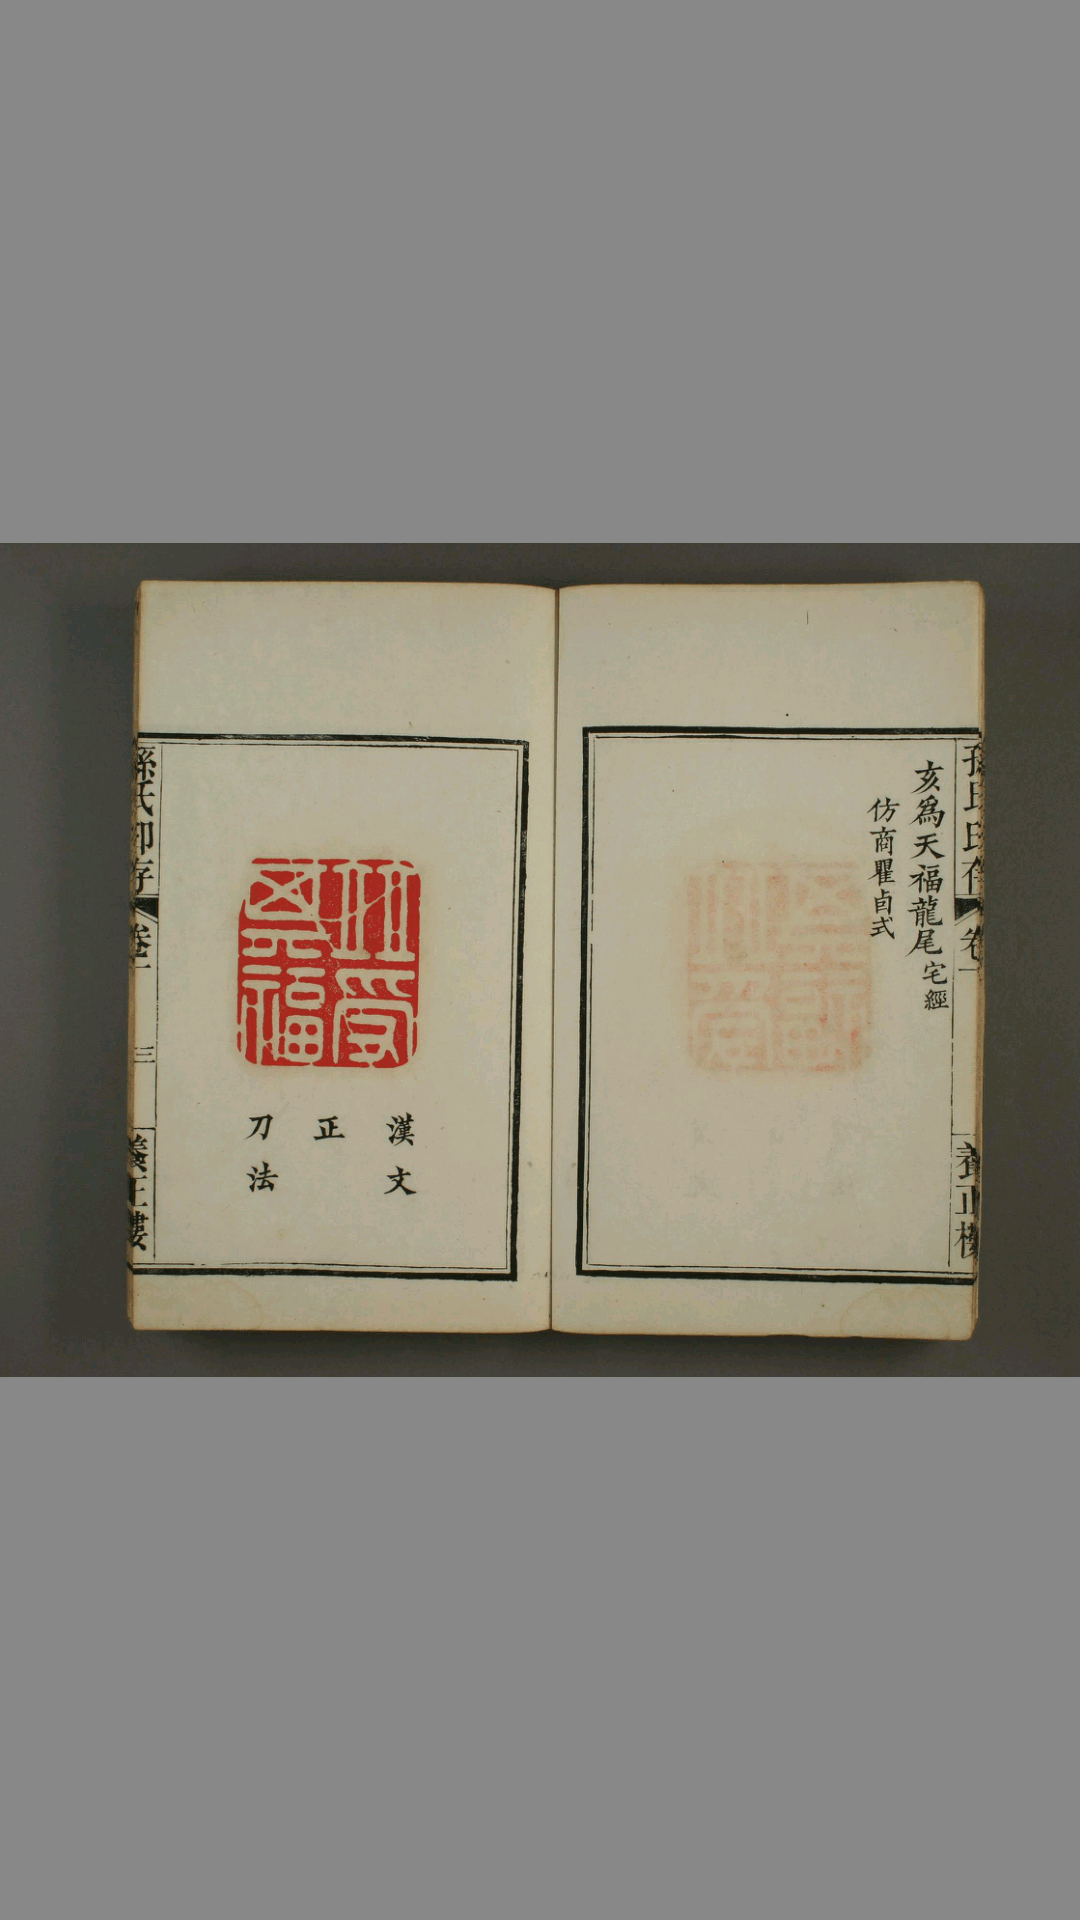 亥爲天福龍尾宅經
仿商瞿卣式
孫氏印存
卷一
養正樓
並受
五福
漢文
正
刀法
孫氏印存
卷一
三
養正樓